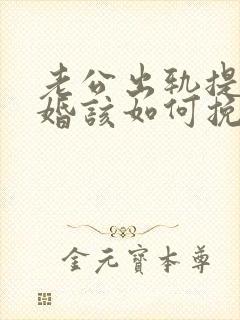 老公出軌提
婚該如何挽
金元寶本尊